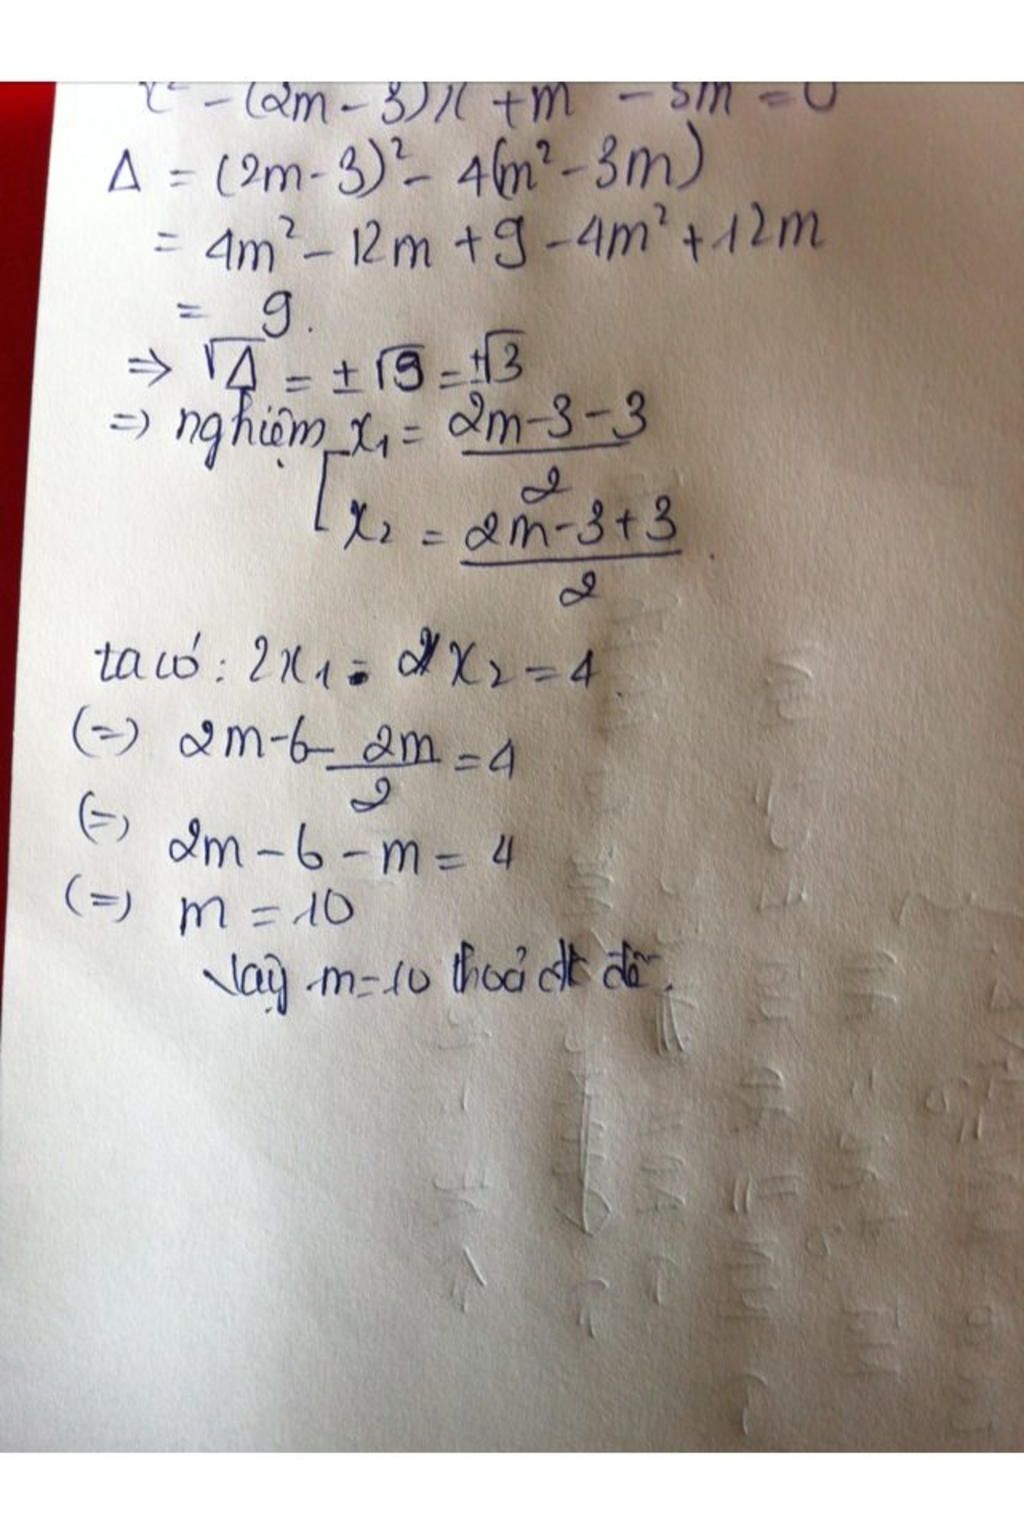 x² - (2m - 3)x + m² - 3m = 0
Δ = (2m - 3)² - 4(m² - 3m)
= 4m² - 12m + 9 - 4m² + 12m
= 9.
⇒ √Δ = ± √9 = ±√3
=) nghiệm x₁ = (2m - 3 - 3)/2
[ x₂ = (2m - 3 + 3)/2
ta có : 2x₁ - x₂ = 4
(=) 2m - 6 - 2m/2 = 4
(=) 2m - 6 - m = 4
(=) m = 10
Vậy m = 10 thoả đk đề.